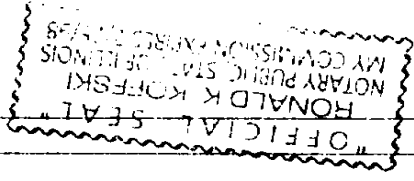 "OFFICIAL SEAL"
RONALD K KOFFSKI
NOTARY PUBLIC STATE OF ILLINOIS
MY COMMISSION EXPIRES